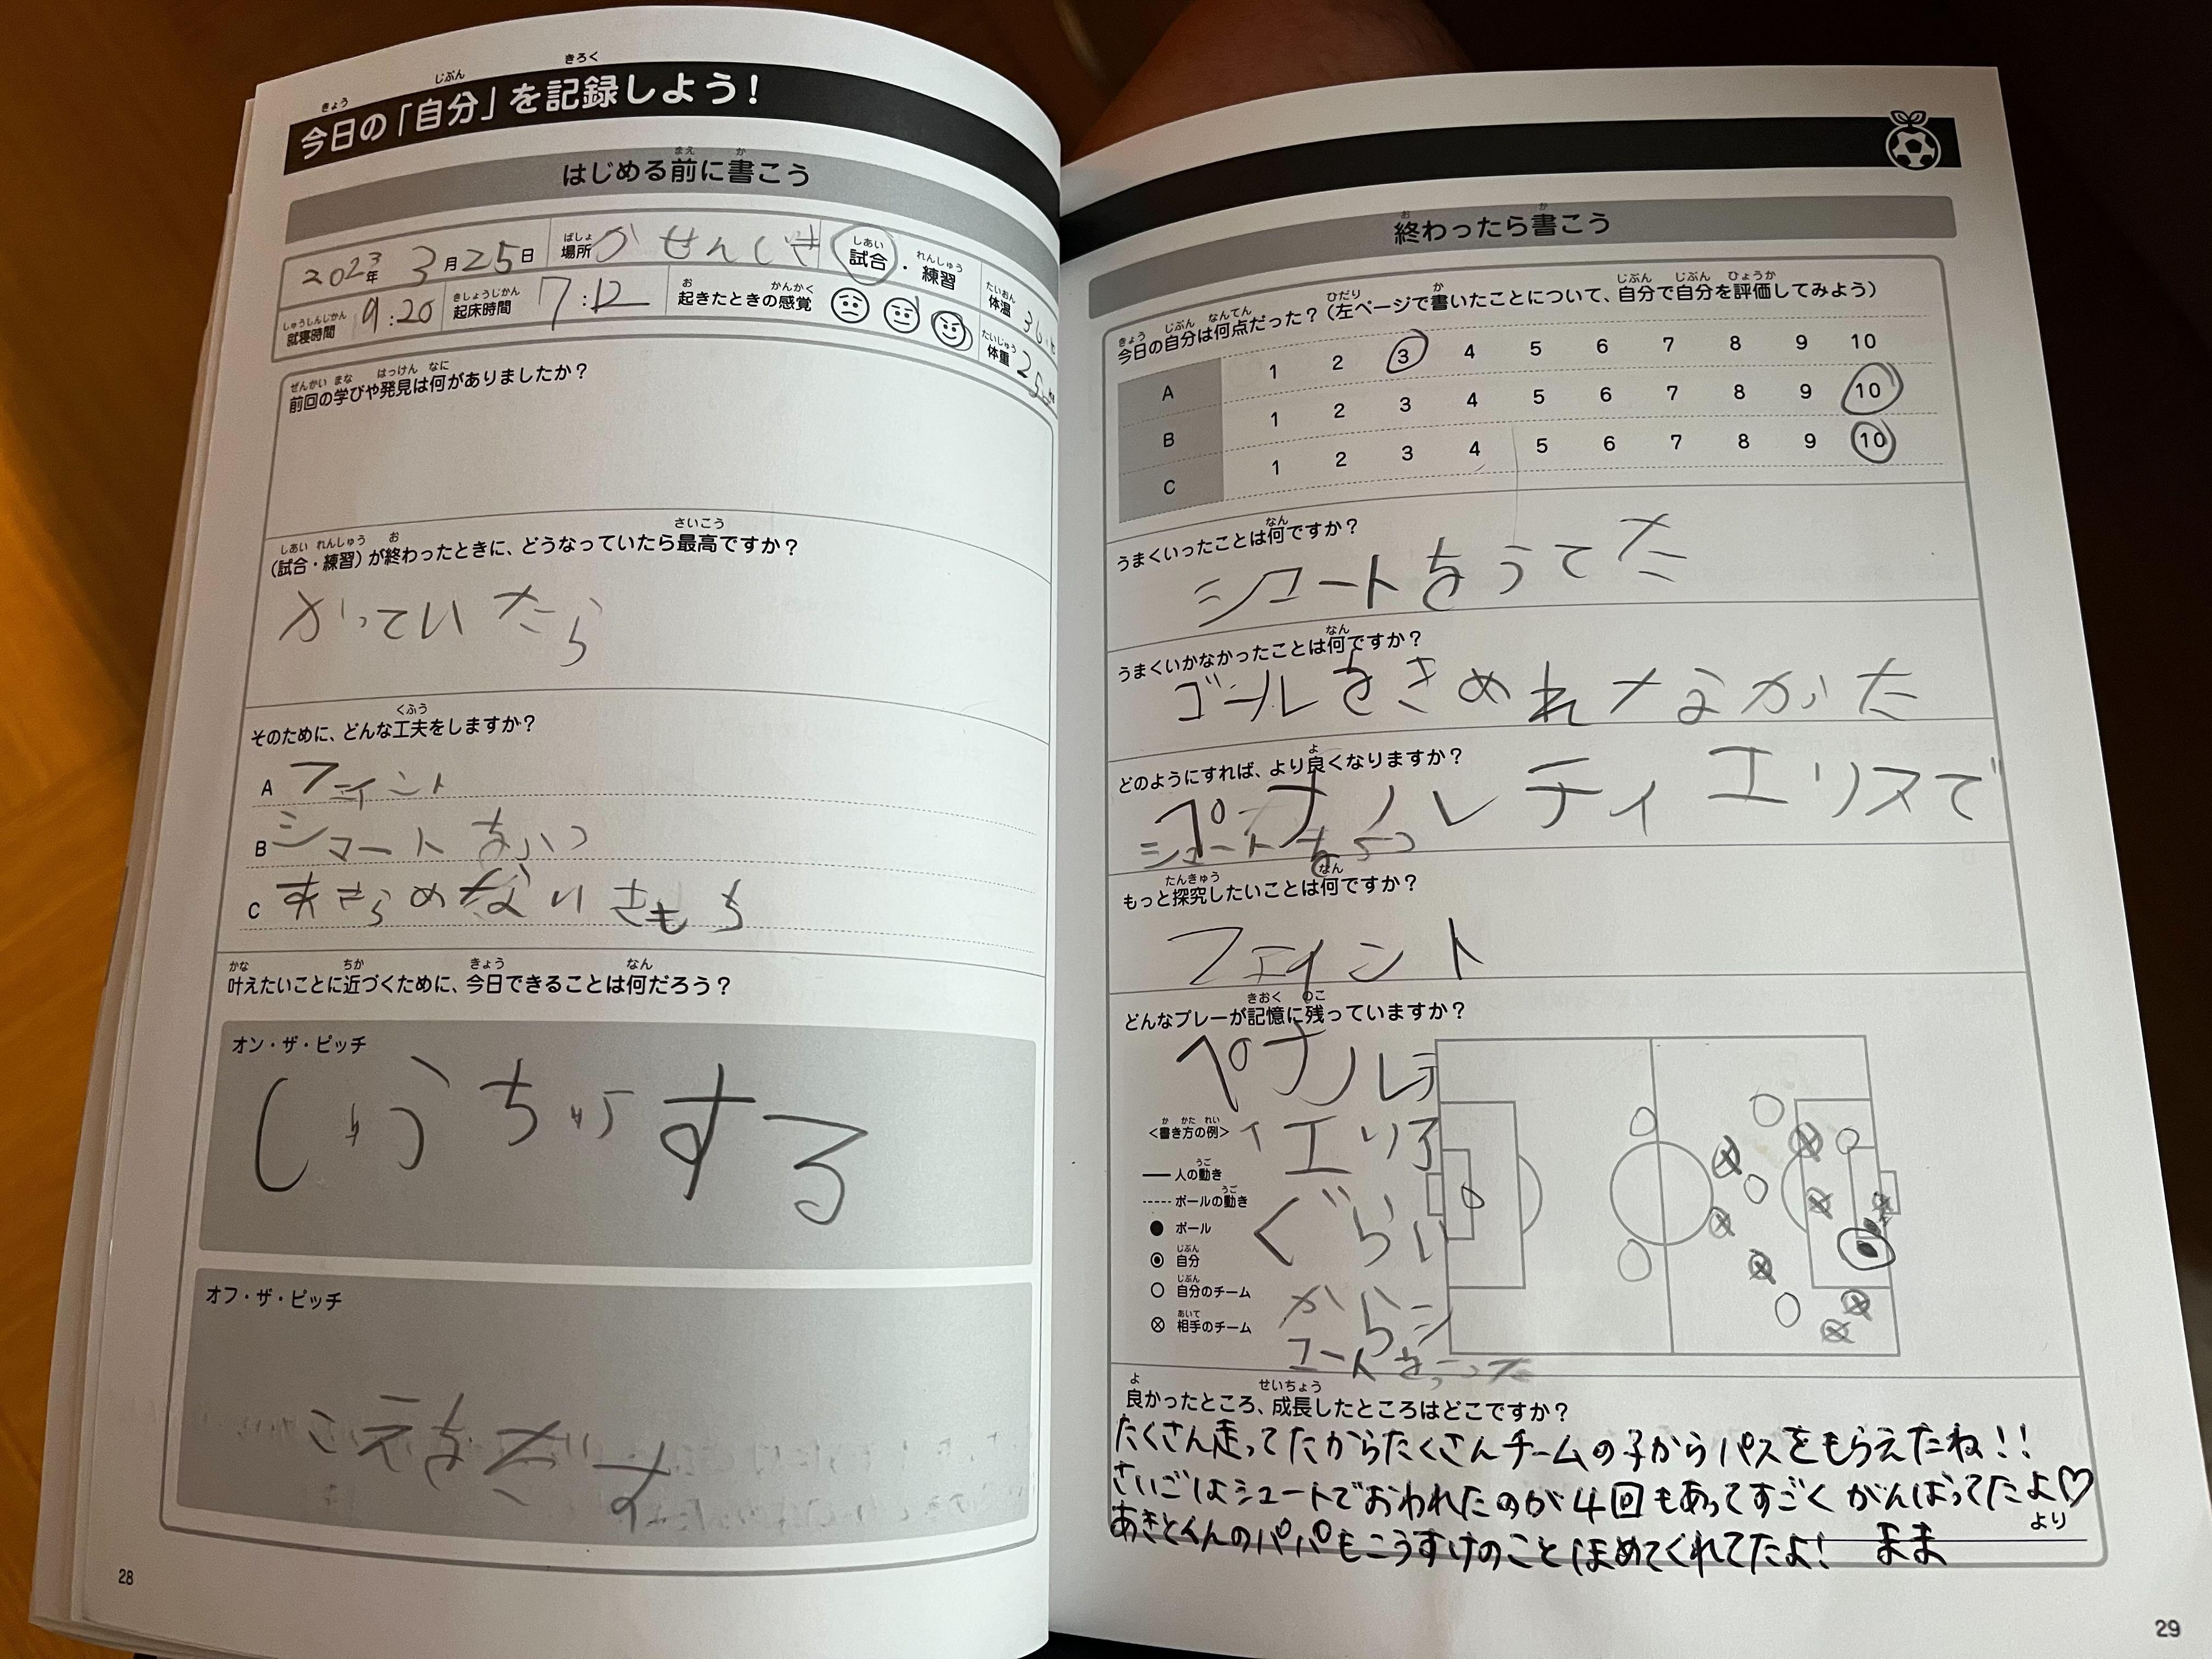 今日の「自分」を記録しよう!
はじめる前に書こう
2023年 3月25日 場所 かせんじき 試合・練習 体温
就寝時間 9:20 起床時間 7:12 起きたときの感覚 体重
前回の学びや発見は何がありましたか?
(試合・練習)が終わったときに、どうなっていたら最高ですか?
かっていたら
そのために、どんな工夫をしますか?
A フェイント
B
C あきらめないきもち
叶えたいことに近づくために、今日できることは何だろう?
オン・ザ・ピッチ
する
オフ・ザ・ピッチ
こえをだす
28
終わったら書こう
今日の自分は何点だった?(左ページで書いたことについて、自分で自分を評価してみよう)
A 1 2 3 4 5 6 7 8 9 10
B 1 2 3 4 5 6 7 8 9 10
C 1 2 3 4 5 6 7 8 9 10
うまくいったことは何ですか?
シュートをうてた
うまくいかなかったことは何ですか?
ゴールをきめれ なかった
どのようにすれば、より良くなりますか?
ペナルティエリスで
シュートをうつ
もっと探究したいことは何ですか?
フェイント
どんなプレーが記憶に残っていますか?
ペナルテ
ィエリア
ぐらい
からシ
ュートをうった
<書き方の例>
人の動き
ボールの動き
ボール
自分
自分のチーム
相手のチーム
良かったところ、成長したところはどこですか?
たくさん走ってたからたくさんチームの子からパスをもらえたね!!
さいごはシュートでおわれたのが4回もあってすごくがんばってたよ♡
あきとくんのパパもこうすけのことほめてくれてたよ! まま より
29